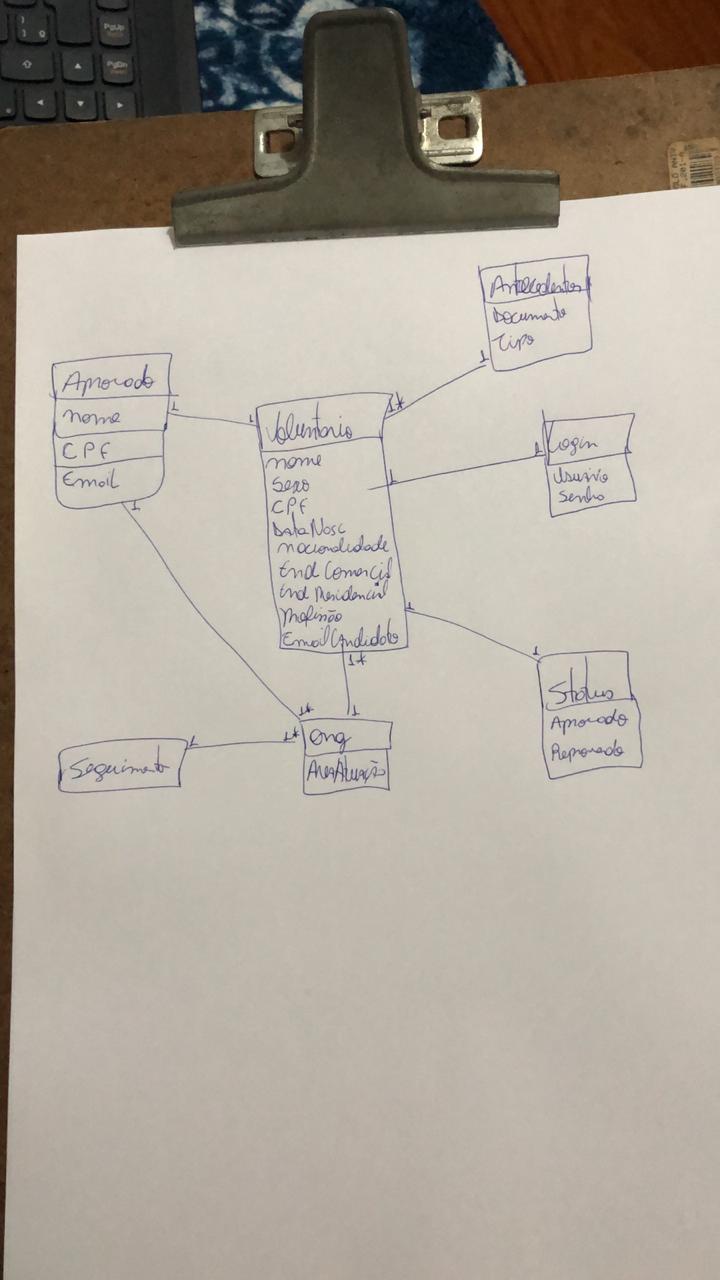 PgUp
PgDn
Antecedentes
Documento
Tipo
1
Aprovado
nome
CPF
Email
1
1
1
1*
Voluntario
nome
Sexo
CPF
DataNasc
nacionalidade
End Comercial
End Residencial
Profissão
Email Candidato
1
1
Login
Usuario
Senha
1
1
Status
Aprovado
Reprovado
1*
1
1*
1*
1
Ong
AreaAtuação
Seguimento